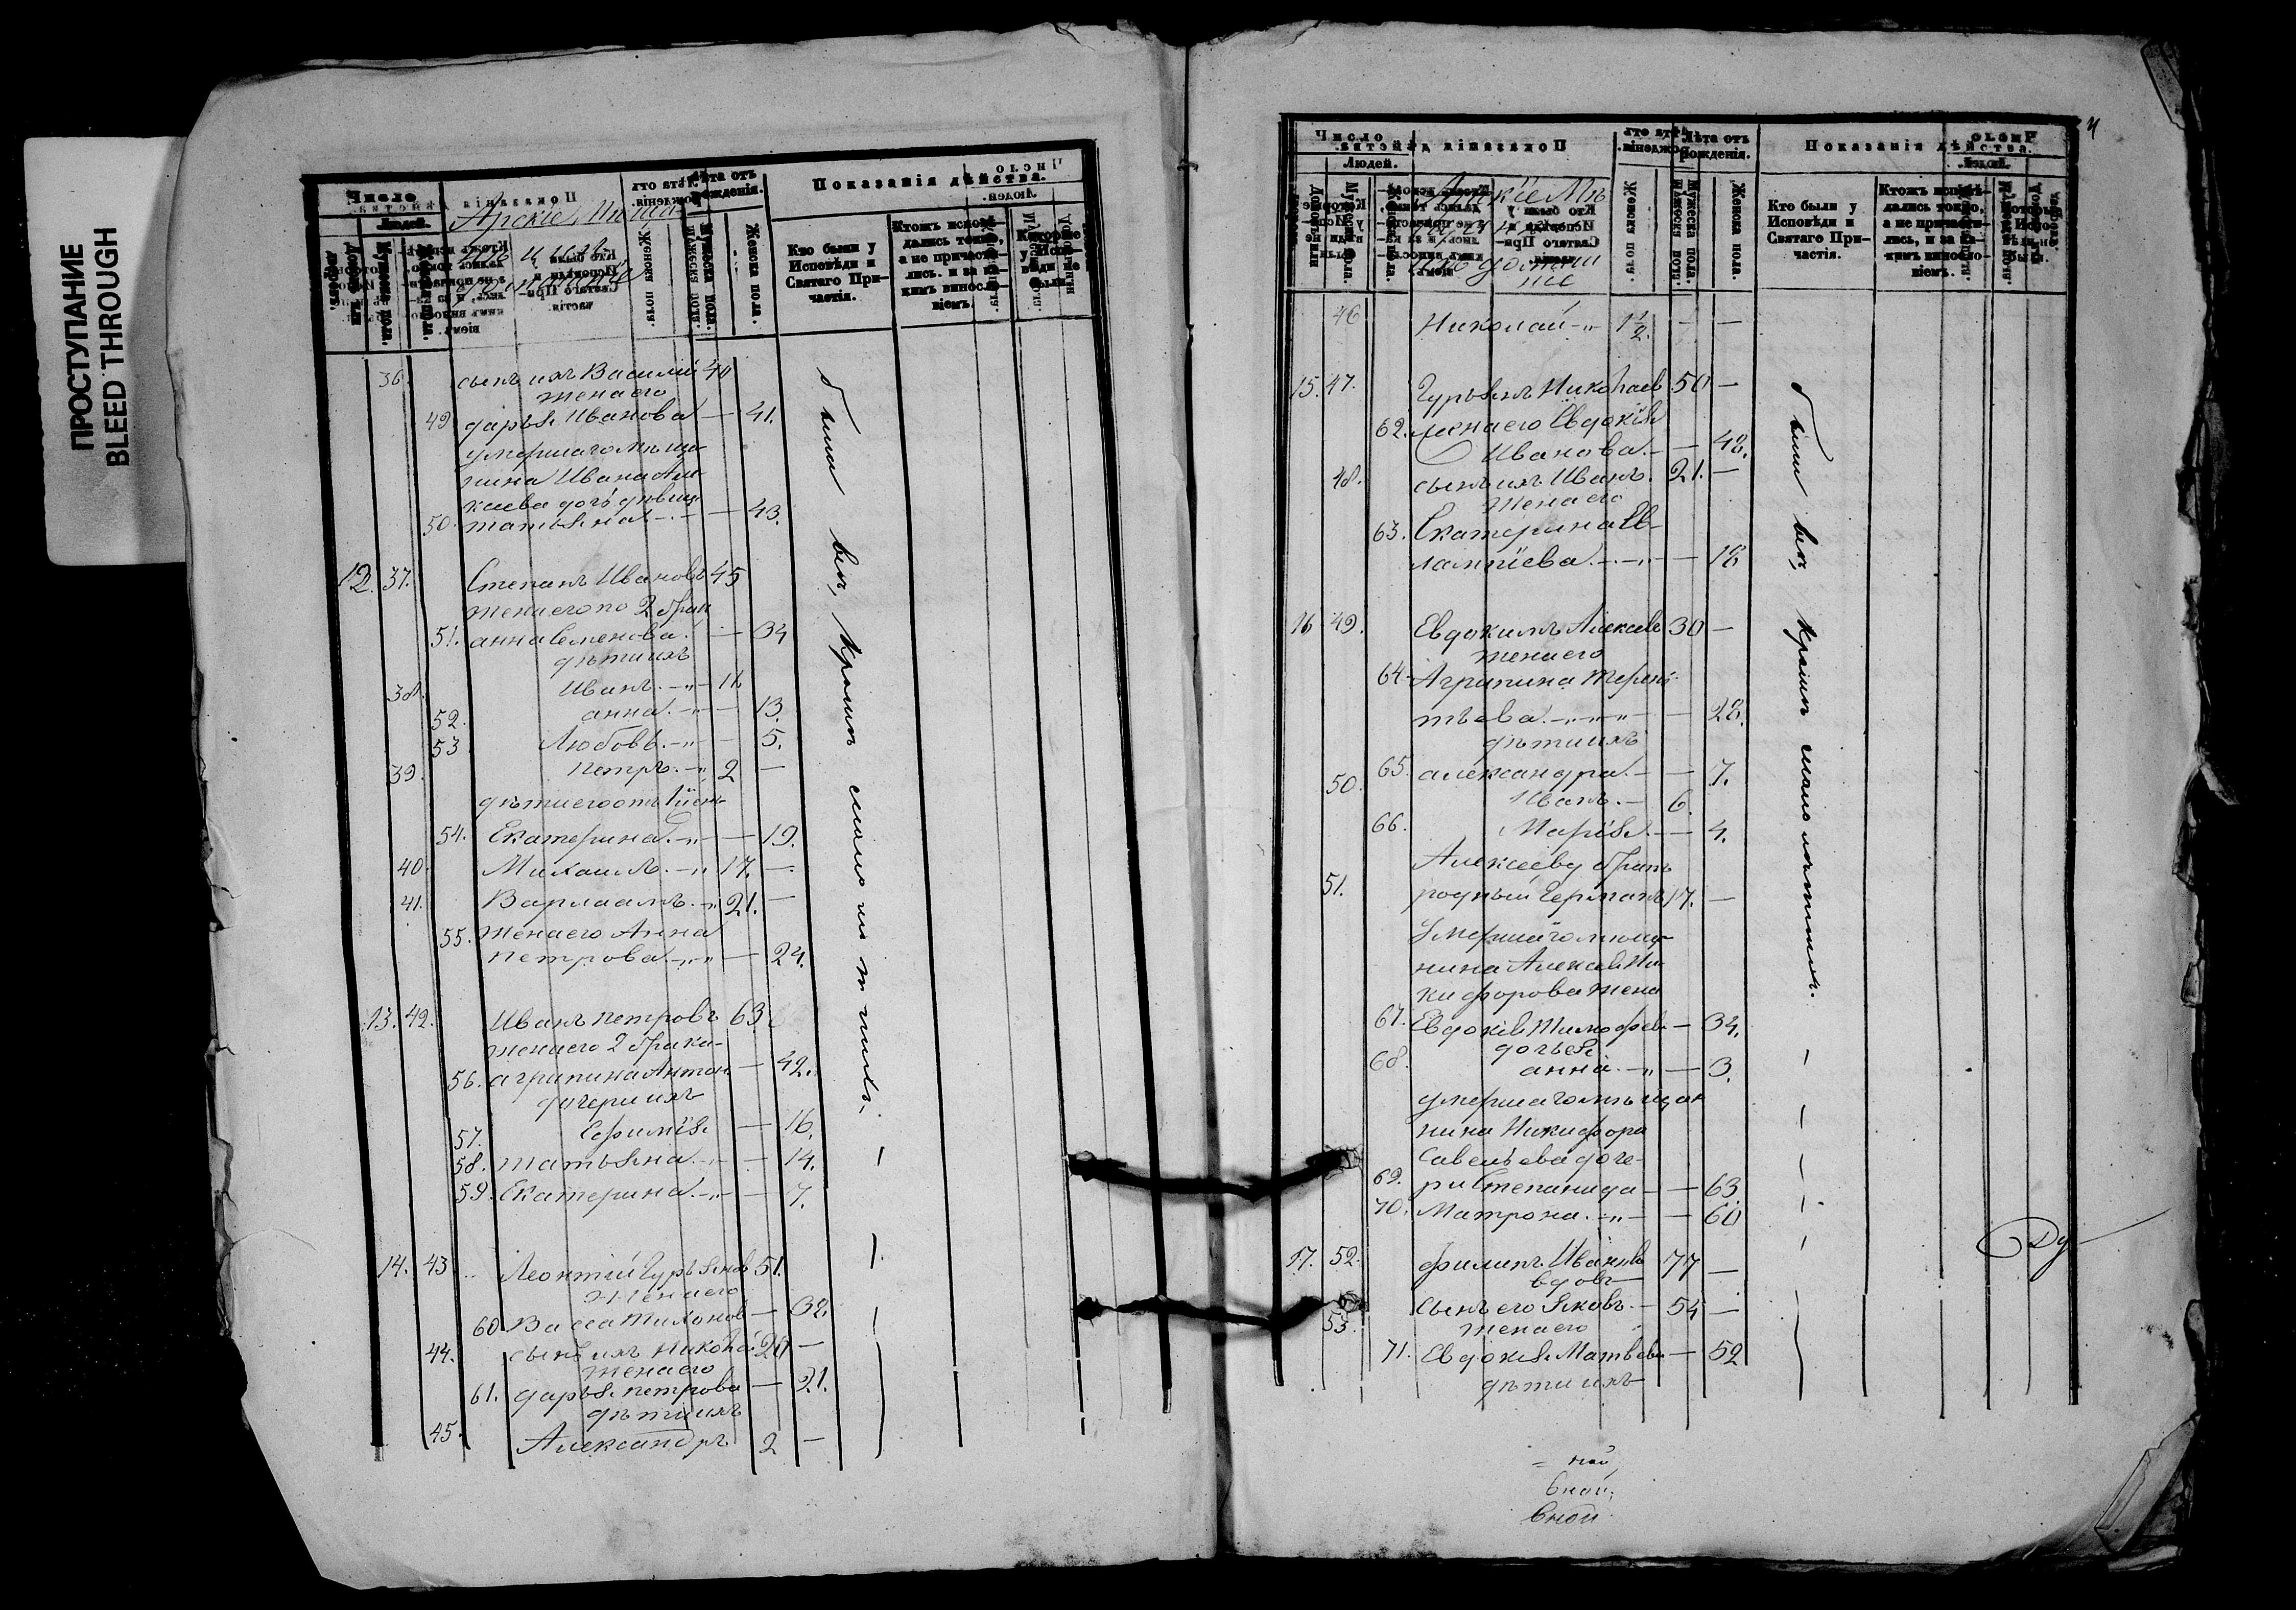 ПРОСТУПАНИЕ
BLEED THROUGH
Число
Людей.
Лѣта отъ рожденія.
Мужеска пола.
Женска пола.
Показанія дѣйства.
Кто были у Исповѣди и Святаго Причастія.
Ктожъ исповѣдались токмо, а не причастились. и за какимъ винословіемъ.
Арскіе Мѣща
не и ихъ
домашніе
36. сынъ ихъ Василій 40
жена его
49 дарья Иванова — 41.
умершаго мѣща
нина Ивана Але
ксеева дочь дѣвица
50. татьяна — 43.
12. 37. Степанъ Ивановъ 45
жена его по 2 брак
51. анна Семенова — 34
дѣти ихъ
38. Иванъ 16
52. анна 13.
53 Любовь 5.
39. петръ 2 —
дѣти его отъ 1й жены
54. Екатерина — 19.
40. Михаилъ 17. —
41. Варлаамъ 21. —
55. жена его Анна
петрова — 24.
13. 42. Иванъ петровъ 63
жена его 2 брака
56. агрипина Антон — 42.
дочери ихъ
57. Ефимія — 16.
58. татьяна — 14.
59. Екатерина — 7.
14. 43 Леонтій Гурьянов 51.
жена его
60 Васса Тихонов — 52.
44. сынъ ихъ Николай 20 —
жена его
61. дарья петрова — 21.
дѣти ихъ
45. Александръ 2 —
были всѣ, кромѣ малолѣтнихъ.
Число
Людей.
Лѣта отъ рожденія.
Мужеска пола.
Женска пола.
Показанія дѣйства.
Кто были у Исповѣди и Святаго Причастія.
Ктожъ исповѣдались токмо, а не причастились, и за какимъ винословіемъ.
Арскіе Мѣ
ихъ домаш
ніе
46 Николай 1 1/2. — —
15. 47. Гурьянъ Николаев 50 —
62. жена его Евдокія
Иванова — 48.
48. сынъ ихъ Иванъ 21. —
жена его
63. Екатерина Ев
лампіева — 18
16 49. Евдокимъ Алексѣев 30 —
жена его
64. Агрипина терен
тьева — 28.
дѣти ихъ
65. александра — 7.
50. Иванъ 6.
66. Марія — 4.
Алексѣеву братъ
51. родный Германъ 17. —
Умершаго мѣща
нина Алексѣя Ни
кифорова жена
67. Евдокія Тимофеев — 34.
дочь ея
68. анна — 3.
умершаго мѣщан
нина Никифора
Савельева доче
69. ри Степанида — 63.
70. Матрона — 60
17. 52. филипъ Иванов 77 —
вдовъ
53. сынъ его Яковъ 54 —
жена его
71. Евдокія Матвѣев — 52
дѣти ихъ
были всѣ, кромѣ малолѣтнихъ.